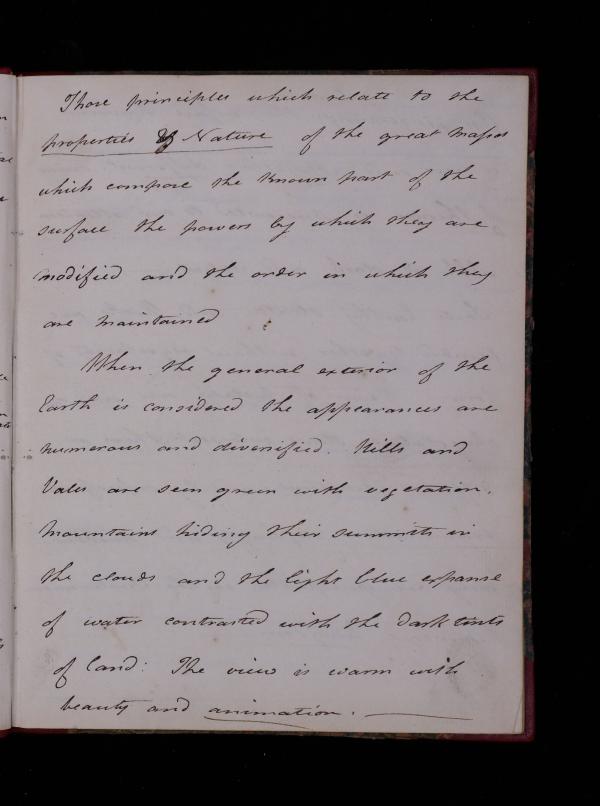 Those principles which relate to the
properties & Nature of the great Masses
which compose the known part of the
surface the powers by which they are
modified and the order in which they
are maintained
When the general exterior of the
Earth is considered the appearances are
numerous and diversified. Hills and
Vales are seen green with vegetation.
Mountains hiding their summits in
the clouds and the light blue expanse
of water contrasted with the dark tints
of land: The view is warm with
beauty and animation. —